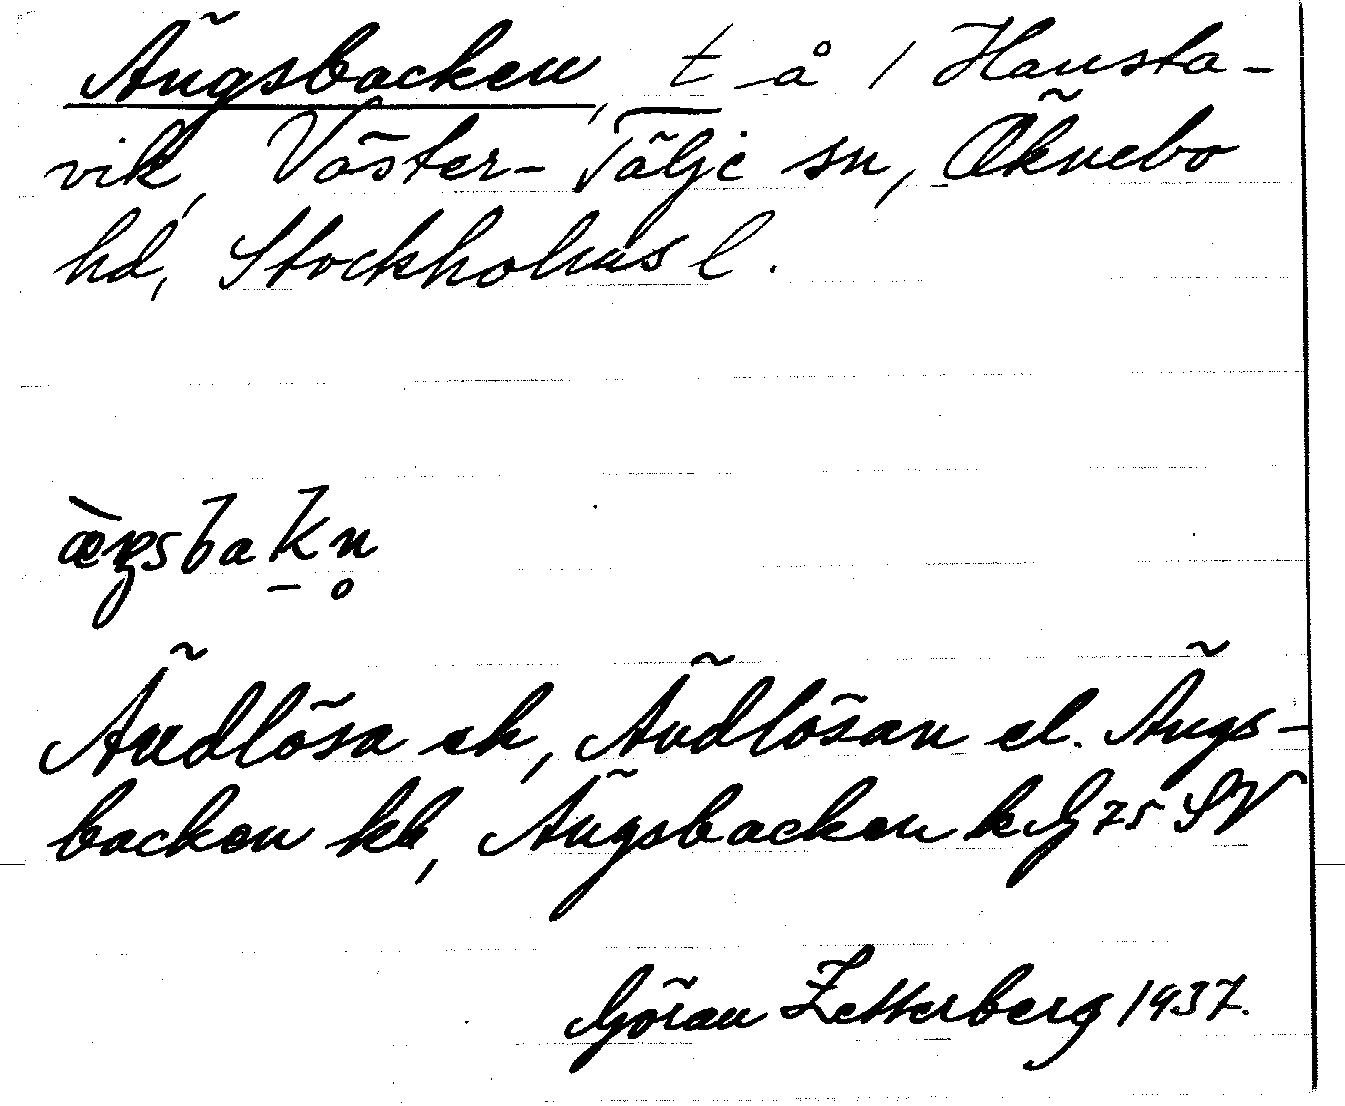 Ängsbacken, t å 1 Hansta-
vik, Väster-Tälje sn, Öknebo
hd, Stockholms l.
ä̀ŋsbakn̥
Ändlösa ek, Ändlösan el. Ängs-
backen kb, Ängsbacken kG 75 SV
Göran Zetterberg 1937.